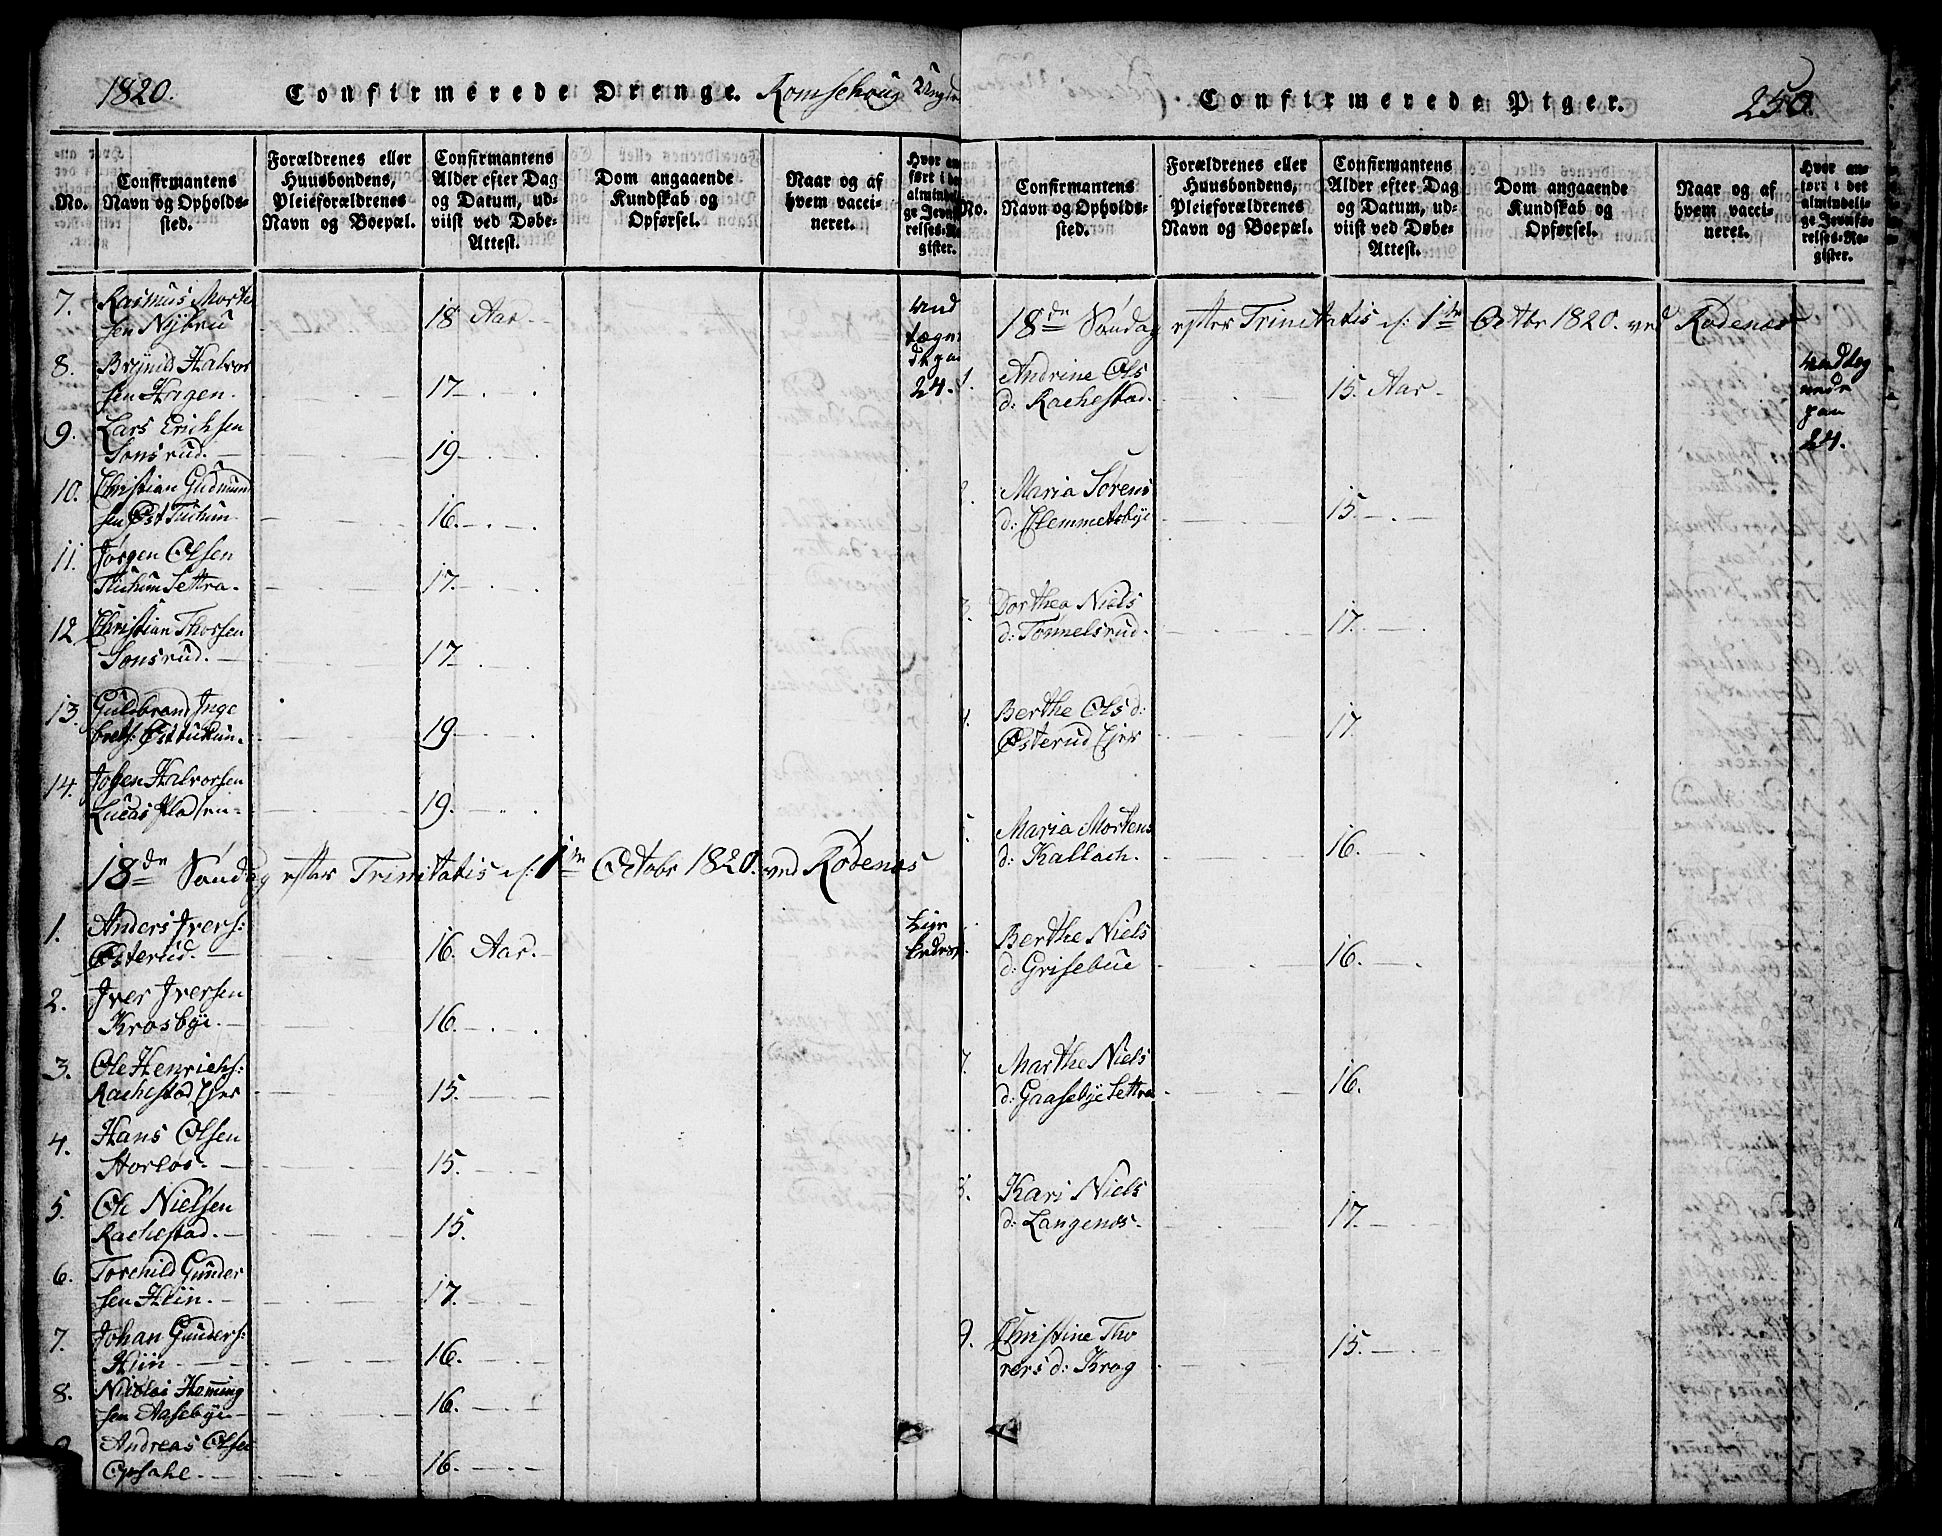 1820.
Confirmerede Drenge. Romschoug
No.
Confirmantens Navn og Opholdssted.
Forældrenes eller Huusbondens, Pleieforældrenes Navn og Boepæl.
Confirmantens Alder efter Dag og Datum, udviist ved Døbe-Attest.
Dom angaaende Kundskab og Opførsel.
Naar og af hvem vaccineret.
7. Rasmus Morten
sen Nÿbru 18 Aar.
8. Brynild Halvor
sen Hagen. 17
24.
9. Lars Erichsen
Sonsrud. 19
10. Christian Gudmund
sen Øst 16.
11. Jørgen Olsen
Settra. 17.
12 Christian Thorsen
Sonsrud. 17
13. Guldbrand Inge
brets: 19.
14. Johen Halvorsen
Lucas 19.
18de Søndag efter Trinitatis /: 1ste Octobr 1820. ved Rødenæs
1. Anders Ivers:
Østerud. 16. Aar.
2. Iver Iversen
Krosbÿe. 16.
3. Ole Henrichs:
Rachestad Ejer 15.
4. Hans Olsen
15.
5. Ole Nielsen
Rachestad. 15.
6. Torchild Gunder
sen Hiin. 17.
7. Johan Gunders:
Hiin 16.
8. Nicolai Heming
sen Aasebÿe 16.
Andreas Olsen
Opsahl. 16.
Confirmerede Piger. 250.
No.
Confirmantens Navn og Opholdssted.
Forældrenes eller Huusbondens, Pleieforældrenes Navn og Boepæl.
Confirmantens Alder efter Dag og Datum, udviist ved Døbe-Attest.
Dom angaaende Kundskab og Opførsel.
Naar og af hvem vaccineret.
Hvor anført i det almindelige Jevnførelses-Register.
18de Søndag efter Trinitatis /: 1ste Octbr 1820. ved Rødenæs
1. Andrine Ols
d: Rachestad. 15. Aar.
24.
Maria Sørens
d: Clemmetsbÿe 15.
Dorthea Niels
d: Tønnelsrud. 17.
Berthe Ols d:
Østerud Ejer 17.
Maria Mortens
d: Kallach. 16.
Berthe Niels
d: Grisebue 16.
7. Marthe Niels
d: Gaasebye Settra 16.
8. Kari Niels
d: Langenæs. 17.
9. Christine Tho
rers d: Krog 15.